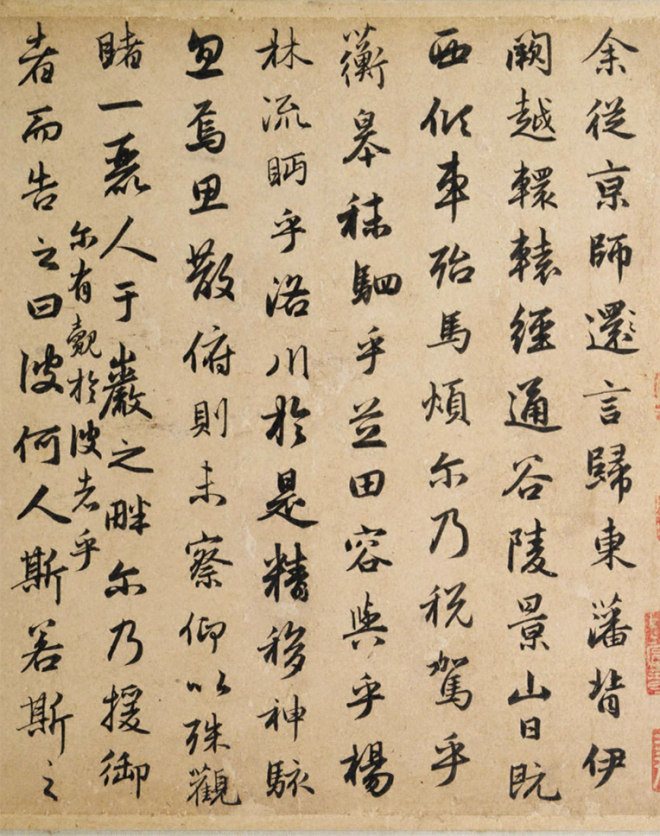 余從京師還言歸東藩背伊
闕越轘轅經通谷陵景山日既
西傾車殆馬煩尔乃税駕乎
蘅皋秣駟乎芝田容與乎楊
林流眄乎洛川於是精移神駭
忽焉思散俯則未察仰以殊觀
睹一麗人于巖之畔尔乃援御
者而告之曰
尔有覿於彼者乎
彼何人斯若斯之